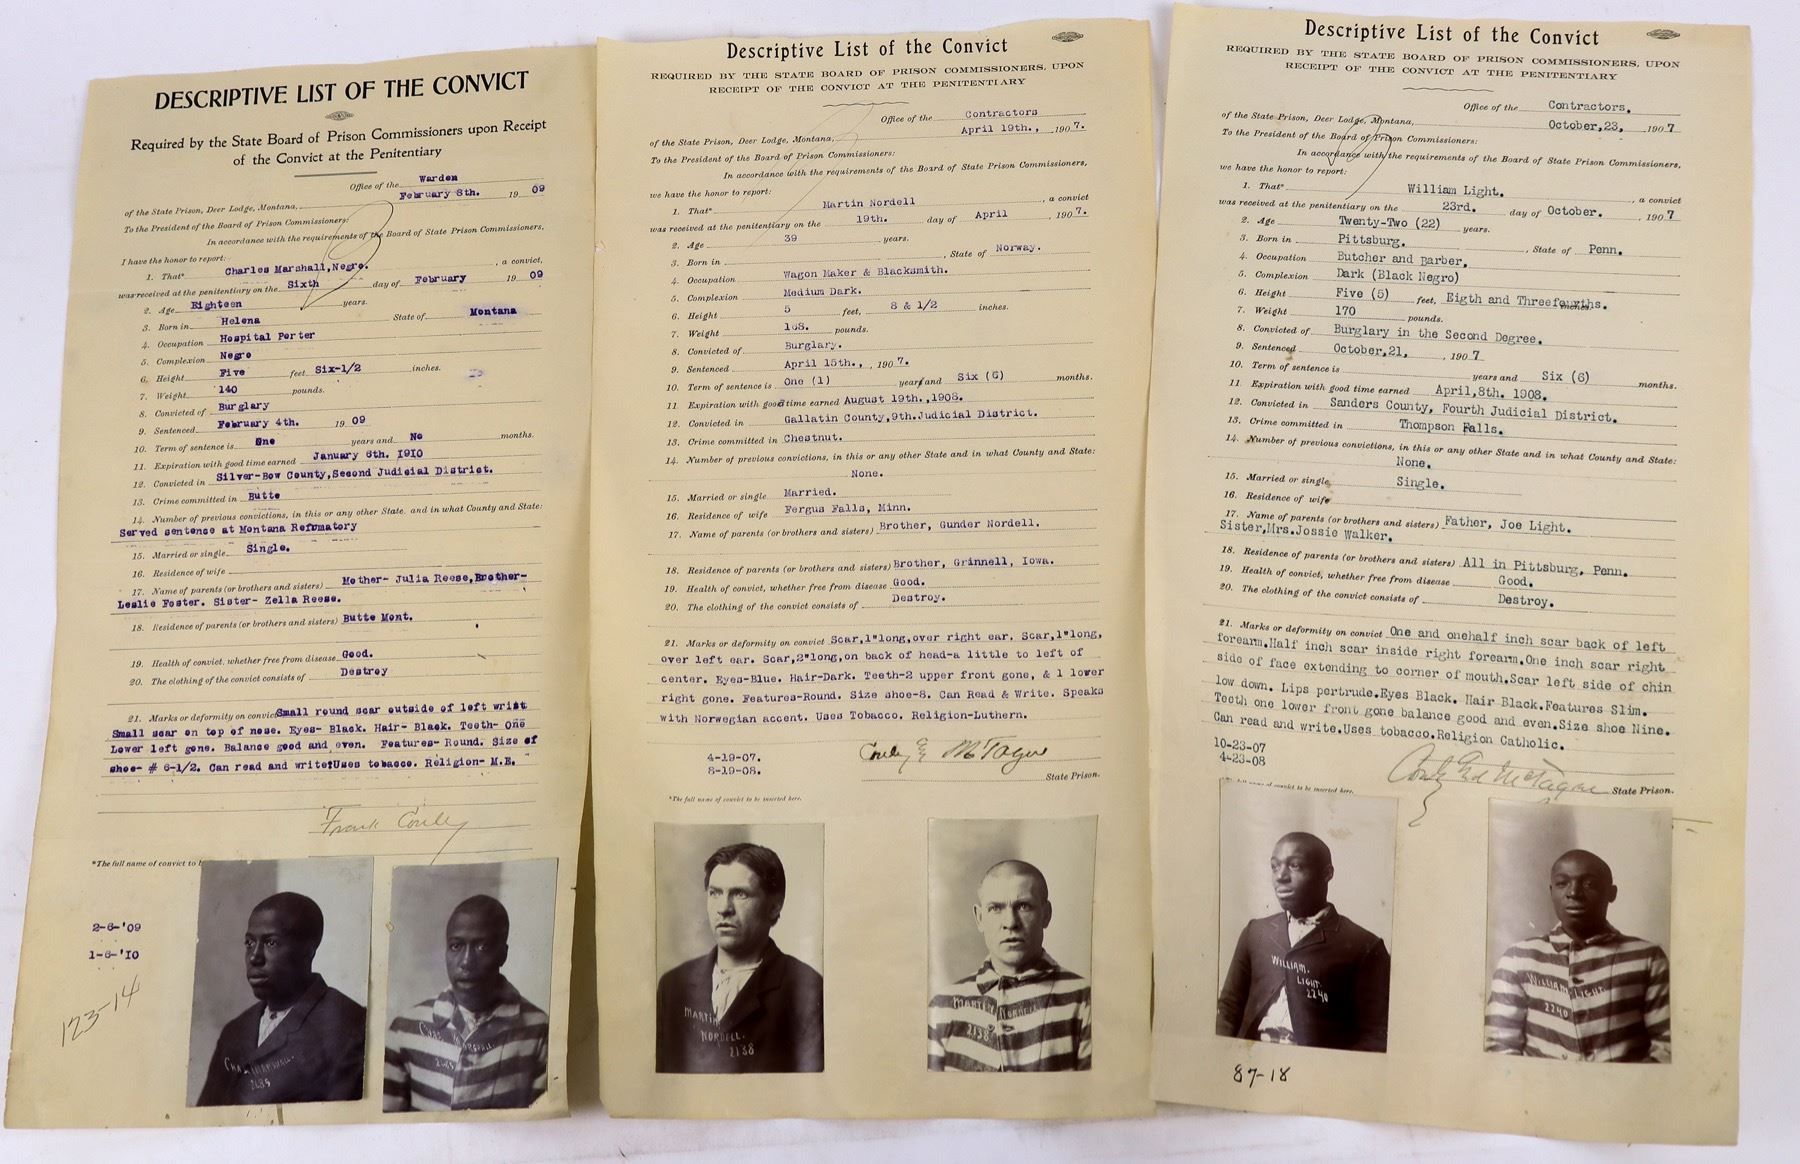 DESCRIPTIVE LIST OF THE CONVICT
Required by the State Board of Prison Commissioners upon Receipt
of the Convict at the Penitentiary
Office of the Warden
of the State Prison, Deer Lodge, Montana, February 8th. 19 09
To the President of the Board of Prison Commissioners:
In accordance with the requirements of the Board of State Prison Commissioners,
I have the honor to report:
1. That* Charles Marshall, Negro. , a convict,
was received at the penitentiary on the Sixth day of February 19 09
2. Age Eighteen years.
3. Born in Helena State of Montana
4. Occupation Hospital Porter
5. Complexion Negro
6. Height Five feet, Six-1/2 inches.
7. Weight 140 pounds.
8. Convicted of Burglary
9. Sentenced February 4th. 19 09
10. Term of sentence is One years and No months.
11. Expiration with good time earned January 6th. 1910
12. Convicted in Silver-Bow County, Second Judicial District.
13. Crime committed in Butte
14. Number of previous convictions, in this or any other State, and in what County and State:
Served sentence at Montana Refomatory
15. Married or single Single.
16. Residence of wife
17. Name of parents (or brothers and sisters) Mother- Julia Reese, Brother-
Leslie Foster. Sister- Zella Reese.
18. Residence of parents (or brothers and sisters) Butte Mont.
19. Health of convict, whether free from disease Good.
20. The clothing of the convict consists of Destroy
21. Marks or deformity on convict Small round scar outside of left wrist
Small scar on top of nose. Eyes- Black. Hair- Black. Teeth- One
Lower left gone. Balance good and even. Features- Round. Size of
shoe- # 6-1/2. Can read and write. Uses tobacco. Religion- M.E.
Frank Conley
*The full name of convict to
2-6-'09
1-6-'10
123-14
2685
2685
Descriptive List of the Convict
REQUIRED BY THE STATE BOARD OF PRISON COMMISSIONERS, UPON
RECEIPT OF THE CONVICT AT THE PENITENTIARY
Office of the Contractors
of the State Prison, Deer Lodge, Montana, April 19th., 190 7.
To the President of the Board of Prison Commissioners:
In accordance with the requirements of the Board of State Prison Commissioners,
we have the honor to report:
1. That* Martin Nordell , a convict
was received at the penitentiary on the 19th. day of April , 190 7.
2. Age 39 years.
3. Born in , State of Norway.
4. Occupation Wagon Maker & Blacksmith.
5. Complexion Medium Dark.
6. Height 5 feet, 8 & 1/2 inches.
7. Weight 168. pounds.
8. Convicted of Burglary.
9. Sentenced April 15th., , 190 7.
10. Term of sentence is One (1) year and Six (6) months.
11. Expiration with good time earned August 19th., 1908.
12. Convicted in Gallatin County, 9th. Judicial District.
13. Crime committed in Chestnut.
14. Number of previous convictions, in this or any other State and in what County and State:
None.
15. Married or single Married.
16. Residence of wife Fergus Falls, Minn.
17. Name of parents (or brothers and sisters) Brother, Gunder Nordell.
18. Residence of parents (or brothers and sisters) Brother, Grinnell, Iowa.
19. Health of convict, whether free from disease Good.
20. The clothing of the convict consists of Destroy.
21. Marks or deformity on convict Scar, 1"long, over right ear. Scar, 1"long,
over left ear. Scar, 2"long, on back of head-a little to left of
center. Eyes-Blue. Hair-Dark. Teeth-2 upper front gone, & 1 lower
right gone. Features-Round. Size shoe-8. Can Read & Write. Speaks
with Norwegian accent. Uses Tobacco. Religion-Luthern.
4-19-07.
8-19-08.
Conley & McTague
State Prison.
*The full name of convict to be inserted here.
MARTIN
NORDELL.
2138
MARTIN NORDELL
2138
Descriptive List of the Convict
REQUIRED BY THE STATE BOARD OF PRISON COMMISSIONERS, UPON
RECEIPT OF THE CONVICT AT THE PENITENTIARY
Office of the Contractors.
of the State Prison, Deer Lodge, Montana, October, 23, 190 7
To the President of the Board of Prison Commissioners:
In accordance with the requirements of the Board of State Prison Commissioners,
we have the honor to report:
1. That* William Light. , a convict
was received at the penitentiary on the 23rd. day of October. , 190 7
2. Age Twenty-Two (22) years.
3. Born in Pittsburg. , State of Penn.
4. Occupation Butcher and Barber,
5. Complexion Dark (Black Negro)
6. Height Five (5) feet, Eigth and Threefourths. inches.
7. Weight 170 pounds.
8. Convicted of Burglary in the Second Degree.
9. Sentenced October, 21, , 190 7
10. Term of sentence is years and Six (6) months.
11. Expiration with good time earned April, 8th. 1908.
12. Convicted in Sanders County, Fourth Judicial District.
13. Crime committed in Thompson Falls.
14. Number of previous convictions, in this or any other State and in what County and State:
None.
15. Married or single Single.
16. Residence of wife
17. Name of parents (or brothers and sisters) Father, Joe Light.
Sister, Mrs. Jossie Walker.
18. Residence of parents (or brothers and sisters) All in Pittsburg, Penn.
19. Health of convict, whether free from disease Good.
20. The clothing of the convict consists of Destroy.
21. Marks or deformity on convict One and onehalf inch scar back of left
forearm. Half inch scar inside right forearm. One inch scar right
side of face extending to corner of mouth. Scar left side of chin
low down. Lips pertrude. Eyes Black. Hair Black. Features Slim.
Teeth one lower front gone balance good and even. Size shoe Nine.
Can read and write. Uses tobacco. Religion Catholic.
10-23-07
4-23-08
Conley and McTague
State Prison.
full name of convict to be inserted here.
WILLIAM.
LIGHT.
2240
WILLIAM LIGHT.
2240
87-18